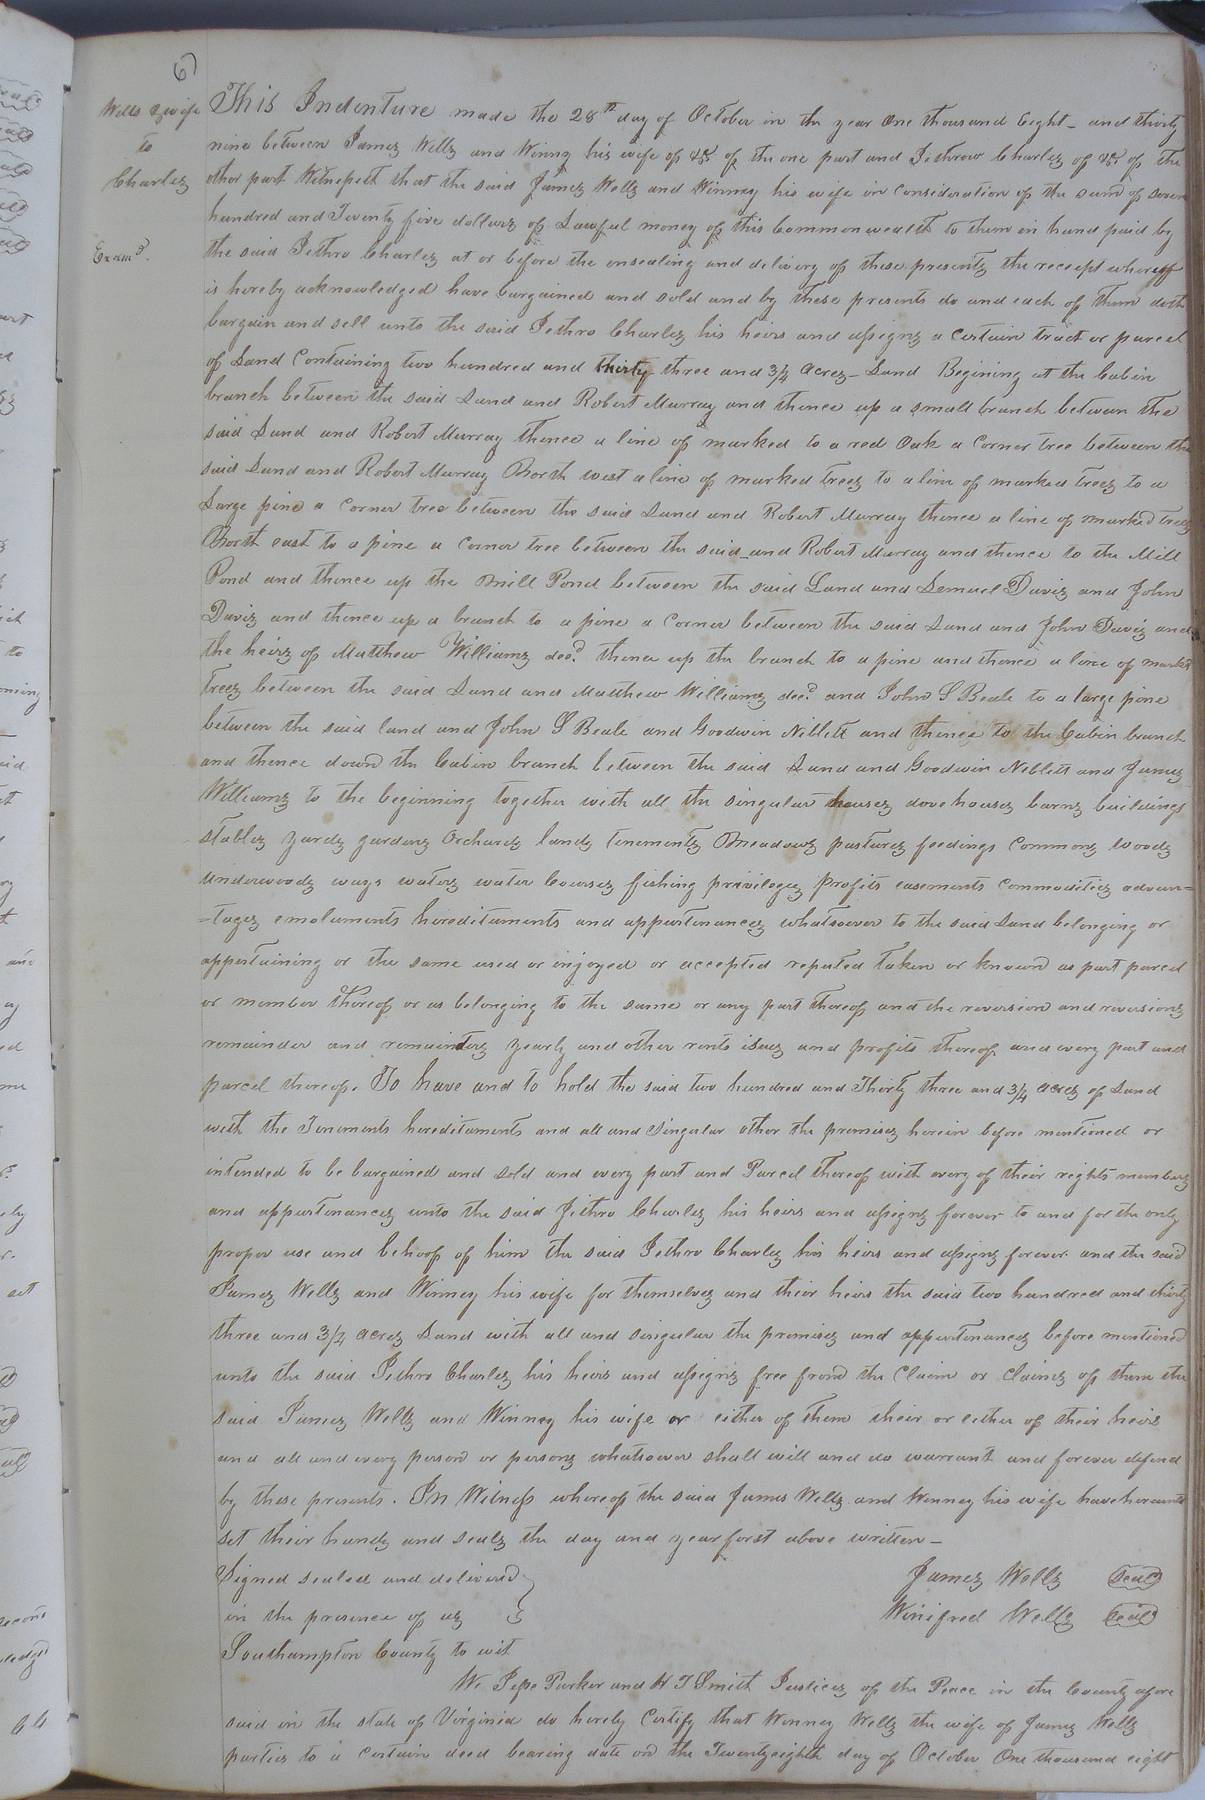 6)
Wells & wife
to
Charles
Examd.
This Indenture made the 28th day of October in the year One thousand Eight- and thirty
nine between James Wells and Winny his wife of &c of the one part and Jethrow Charles of &c of the
other part Witnesseth that the said James Wells and Winney his wife in consideration of the sum of seven
hundred and Twenty five dollars of Lawful money of this Commonwealth to them in hand paid by
the said Jethro Charles at or before the ensealing and delivery of these presents the receipt whereoff
is hereby acknowledged have bargained and sold and by these presents do and each of them doth
bargain and sell unto the said Jethro Charles his heirs and assigns a certain tract or parcel
of Land Containing two hundred and thirty three and 3/4 acres- Land Begining at the Cabin
branch between the said Land and Robert Murray and thence up a small branch between the
said Land and Robert Murray thence a line of marked to a red Oak a Corner tree between the
said Land and Robert Murray North west a line of marked trees to a line of marked trees to a
Large pine a Corner tree between the said Land and Robert Murray thence a line of marked trees
North east to a pine a Corner tree between the said_and Robert Murray and thence to the Mill
Pond and thence up the Mill Pond between the said Land and Lemuel Davis and John
Davis and thence up a branch to a pine a Corner between the said Land and John Davis and
the heirs of Matthew Williams decd. thence up the branch to a pine and thence a line of markd
trees between the said Land and Matthew Williams decd. and John S Beale to a large pine
between the said land and John S Beale and Goodwin Niblett and thence to the Cabin branch
and thence down the Cabin branch between the said Land and Goodwin Neblett and James
Williams to the beginning together with all the singular houses dovehouses barns buildings
stables yards gardens Orchards lands tenements Meadows pastures feedings Commons woods
underwoods ways waters water Courses fishing privileges Profits easements Commodities advan=
=tages emoluments hereditaments and appurtenances whatsoever to the said Land belonging or
appertaining or the same used or injoyed or accepted reputed taken or known as part parcel
or member thereof or as belonging to the same or any part thereof and the reversion and reversions
remainder and remainders yearly and other rents isues and profits thereof and every part and
parcel thereof. To have and to hold the said two hundred and Thirty three and 3/4 acres of Land
with the Tenements hereditaments and all and Singular other the premises herein before mentioned or
intended to be bargained and sold and every part and Parcel thereof with every of their rights members
and appurtenances unto the said Jethro Charles his heirs and assigns forever to and for the only
proper use and behoof of him the said Jethro Charles his heirs and assigns forever and the said
James Wells and Winney his wife for themselves and their heirs the said two hundred and thirty
three and 3/4 acres Land with all and singular the premises and appurtenances before mentioned
unto the said Jethro Charles his heirs and assigns free from the Claim or Claims of them the
said James Wells and Winney his wife or either of them their or either of their heirs
and all and every person or persons whatsoever shall will and do warrant and forever defend
by these presents. In Witness whereof the said James Wells and Winney his wife have hereunto
set their hands and seals the day and year first above written_
Signed sealed and delivered
in the presence of us
James Wells Seal
Winifred Wells Seal
Southampton County to wit
We Jesse Parker and H T Smith Justices of the Peace in the County afore
said in the state of Virginia do hereby Certify that Winney Wells the wife of James Wells
parties to a certain deed bearing date on the Twentyeighth day of October One thousand eight